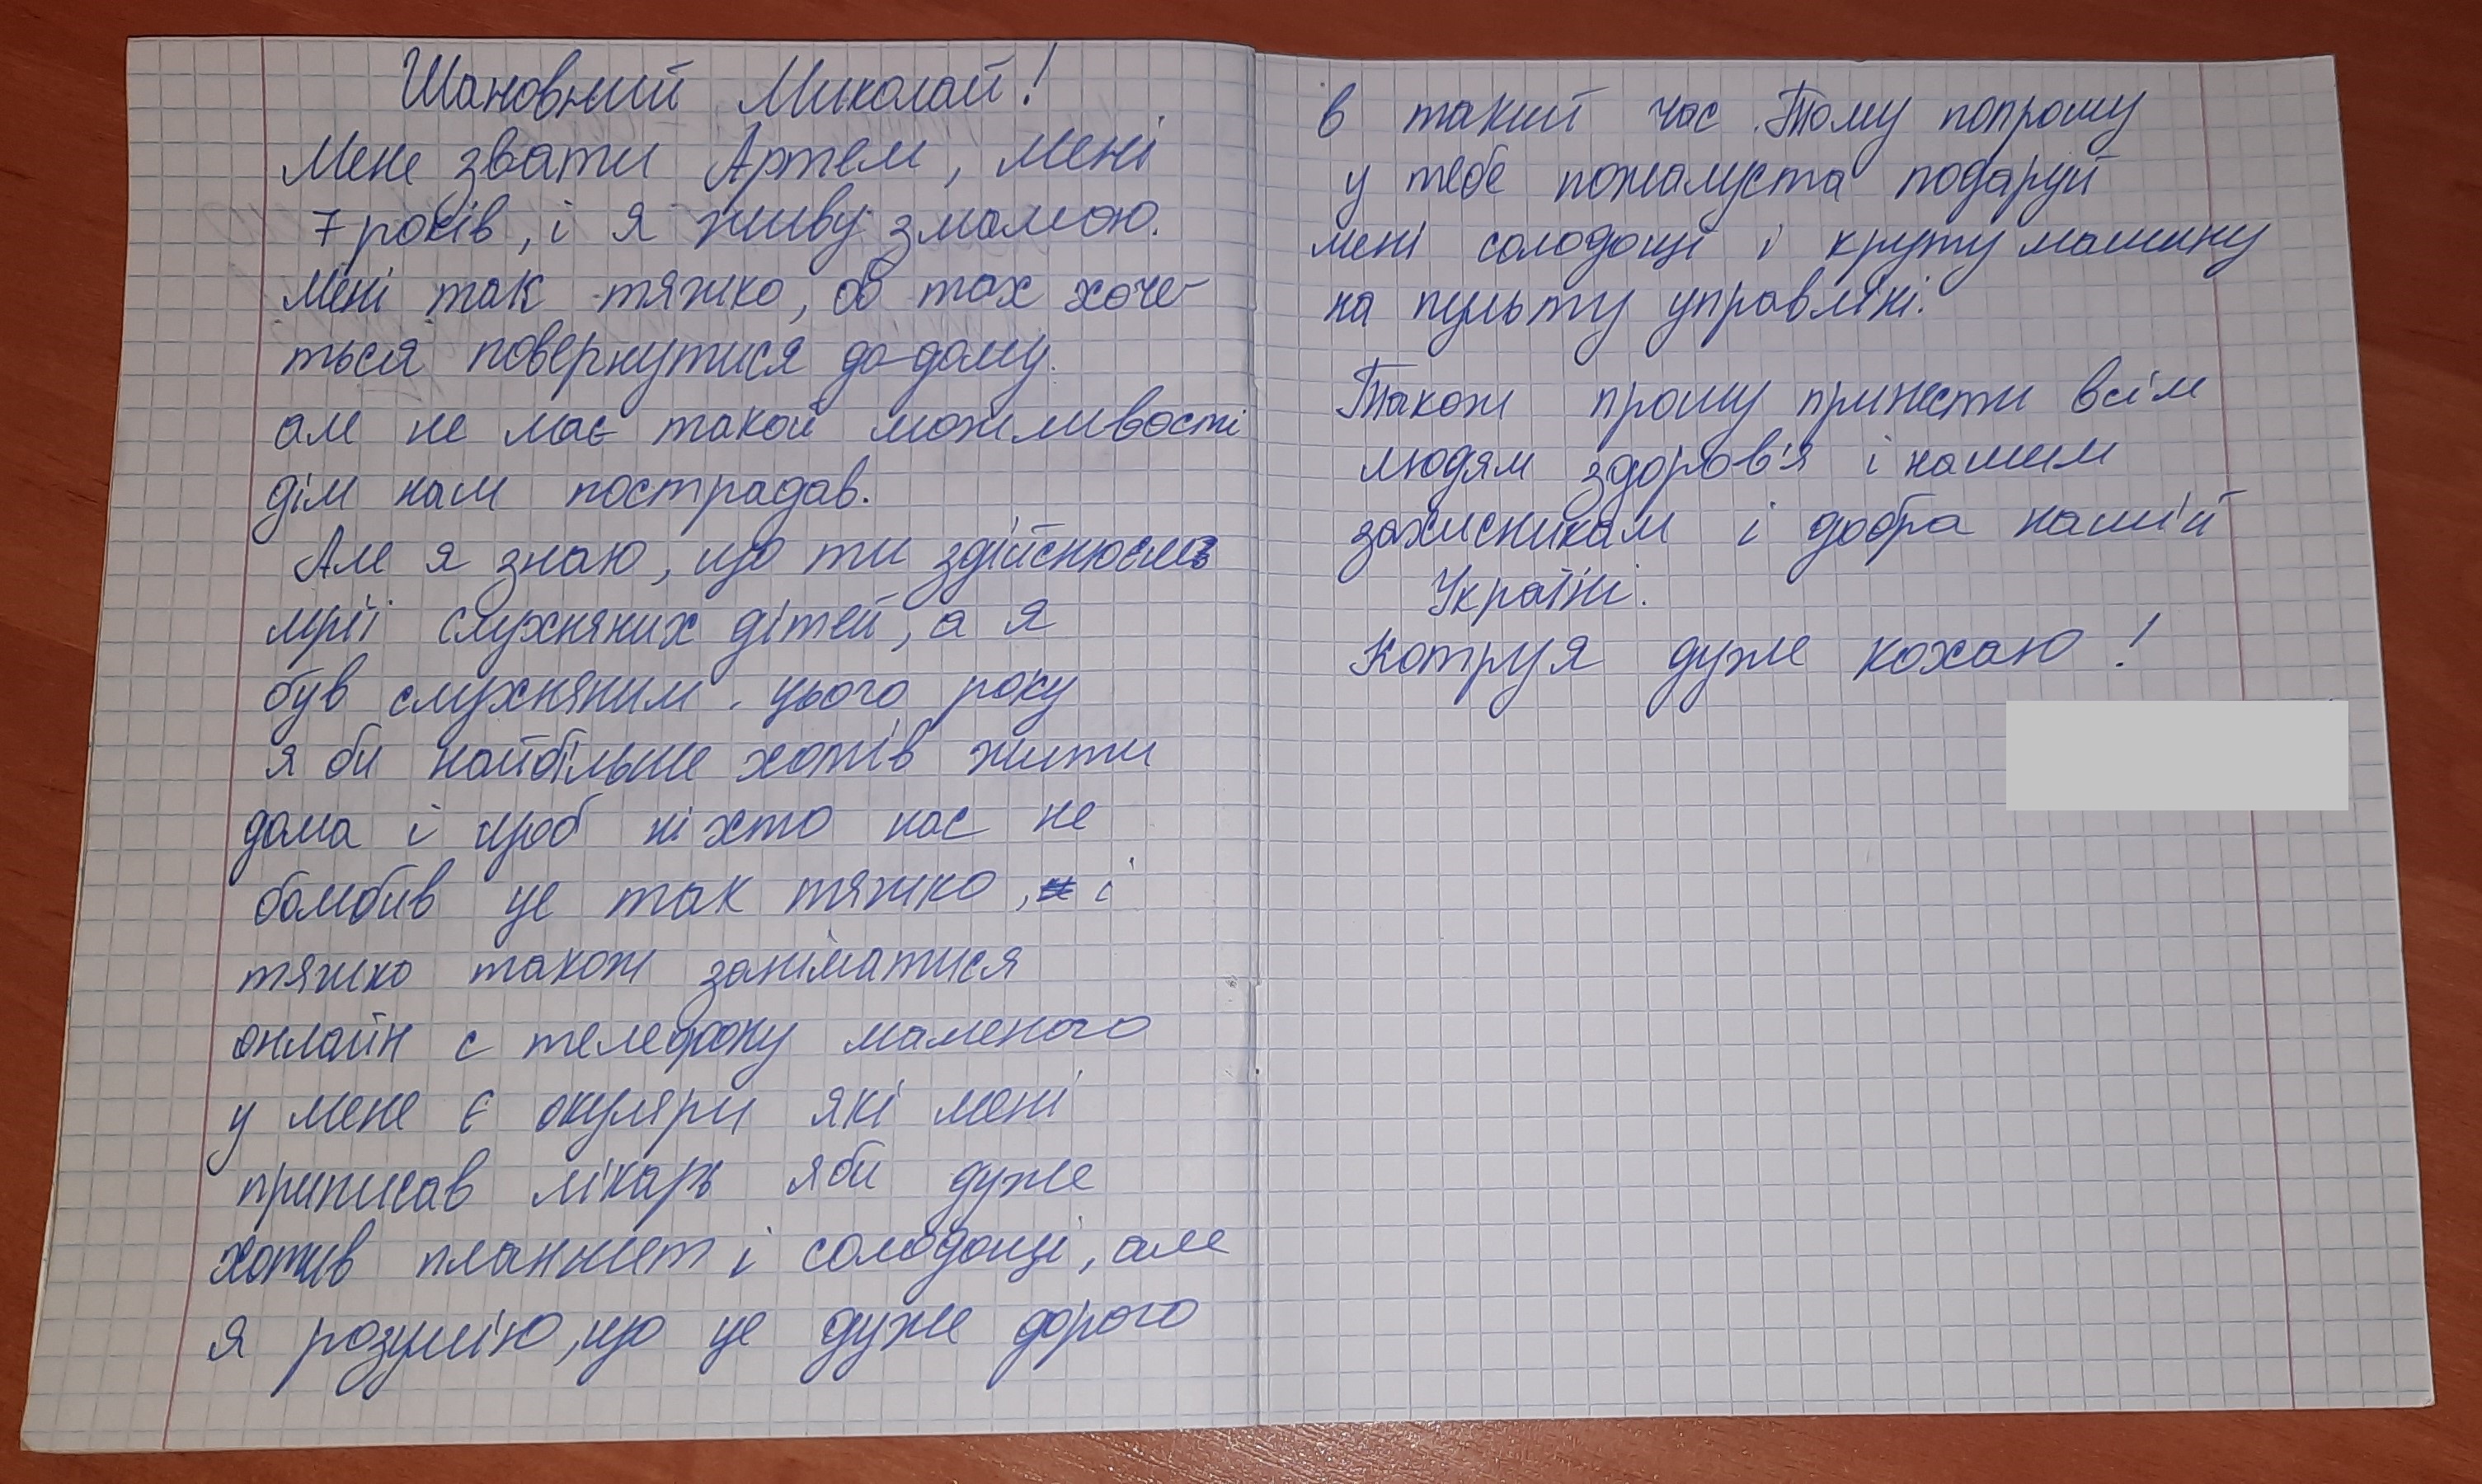 Шановний Миколай!
Мене звати Артем, мені
7 років, і я живу з мамою.
Мені так тяжко, об так хоче-
ться повернутися до-дому.
але не має такой можливості
дім нам пострадав.
Але я знаю, що ти здійснюєшь
мрії слухняних дітей, а я
був слухняним. цього року
я би найбільше хотів жити
дома і щоб ніхто нас не
бомбив це так тяжко, і
тяжко також заніматися
онлайн с телефону маленого
у мене є окуляри які мені
приписав лікарь яби дуже
хотив планшет і солодощі, але
я розумію, що це дуже дорого
в такий час. Тому попрошу
у тебе пожалуста подаруй
мені солодощі і круту машину
на пульту управліні.
Також прошу принести всім
людям здоров'я і нашим
захисникам і добра нашій
Україні.
Котруя дуже кохаю!